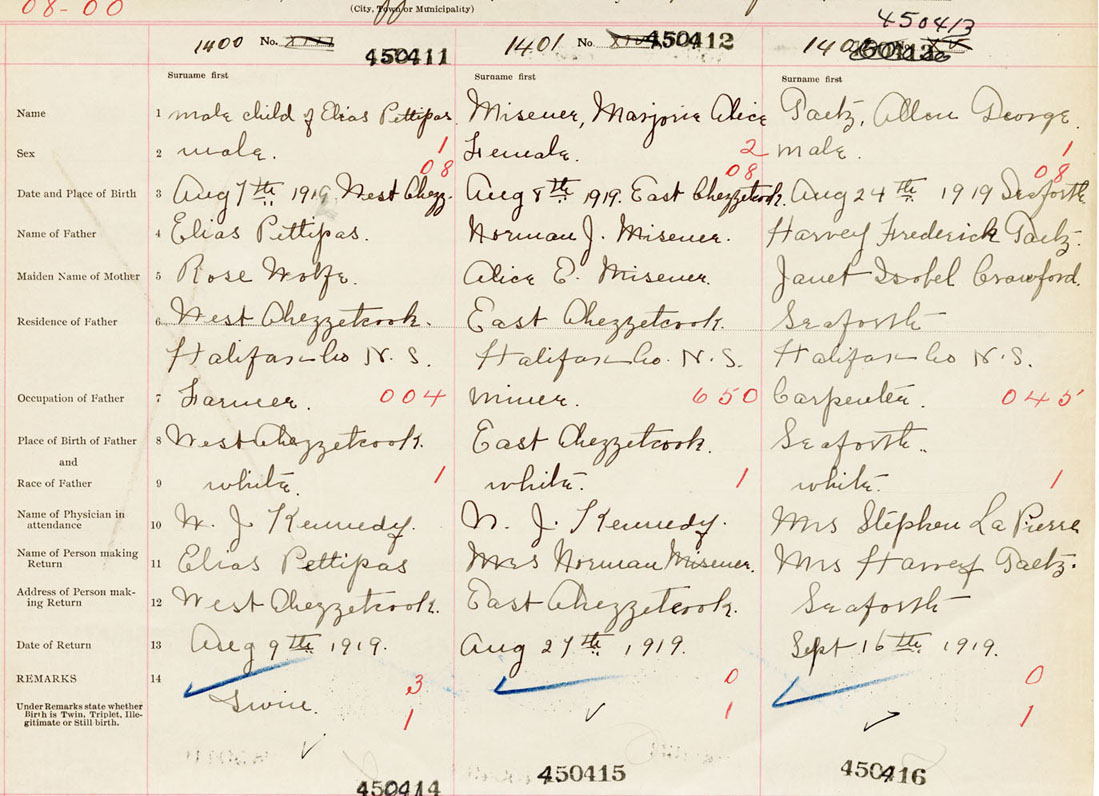 08-00
(City, Town or Municipality)
1400 No. 450411 1401 No 450412 450413
Surname first Surname first Surname first
Name 1 male child of Elias Pettipas. Misener, Marjorie Alice Gaetz, Allen George.
Sex 2 male. 1 Female. 2 male. 1
08 08 08
Date and Place of Birth 3 Aug 7th 1919 West Chezz. Aug 8th 1919. East Chezzetcook. Aug 24th 1919 Seaforth
Name of Father 4 Elias Pettipas. Norman J. Misener. Harvey Frederick Gaetz.
Maiden Name of Mother 5 Rose Wolfe. Alice E. Misener. Janet Isobel Crawford.
Residence of Father 6 West Chezzetcook. East Chezzetcook. Seaforth
Halifax Co N. S. Halifax Co. N. S. Halifax Co N. S.
Occupation of Father 7 Farmer. 004 miner. 650 Carpenter. 045
Place of Birth of Father 8 West Chezzetcook. East Chezzetcook. Seaforth..
and
Race of Father 9 white. 1 white. 1 white. 1
Name of Physician in
attendance 10 W. J. Kennedy. W. J. Kennedy. Mrs Stephen La Pierre
Name of Person making
Return 11 Elias Pettipas Mrs Norman Misener. Mrs Harvey Gaetz.
Address of Person mak-
ing Return 12 West Chezzetcook. East Chezzetcook. Seaforth
Date of Return 13 Aug 9th 1919. Aug 27th 1919. Sept 16th 1919.
REMARKS 14 3 0 0
Under Remarks state whether
Birth is Twin, Triplet, Ille-
gitimate or Still birth. Twin. 1 1 1
450414 450415 450416